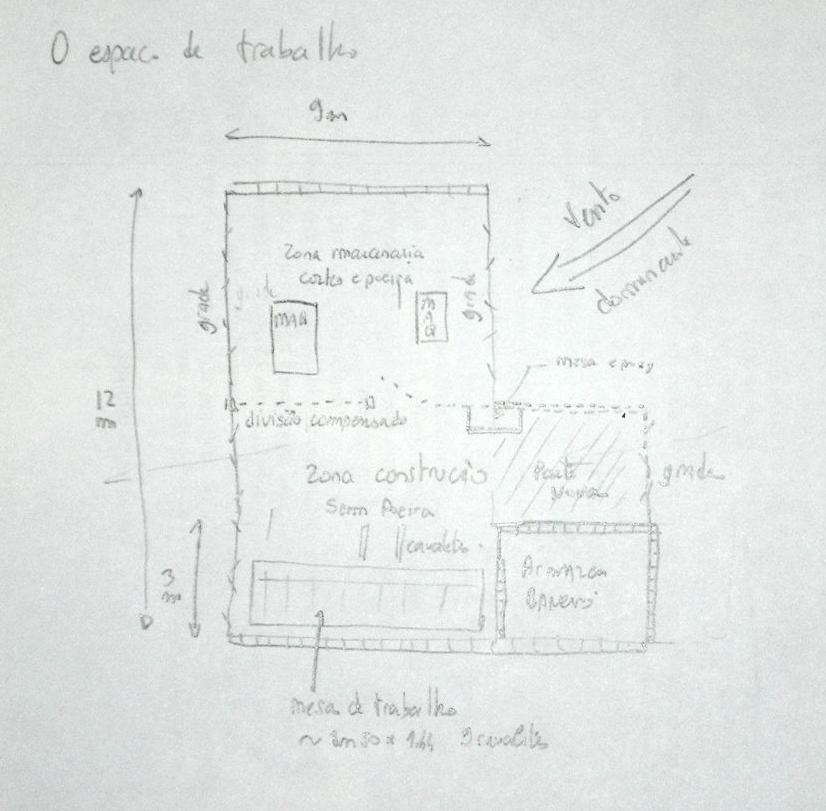 O espaço de trabalho
9m
Vento
dominante
Zona maccenaria
cortes e poeira
grade
grade
MAQ
MAQ
mesa epoxy
12
m
divisão compensado
Zona construção
Sem Poeira
Parte
Nova
grade
cavaletes
3
m
Armazem
mesa de trabalho
cavaletes